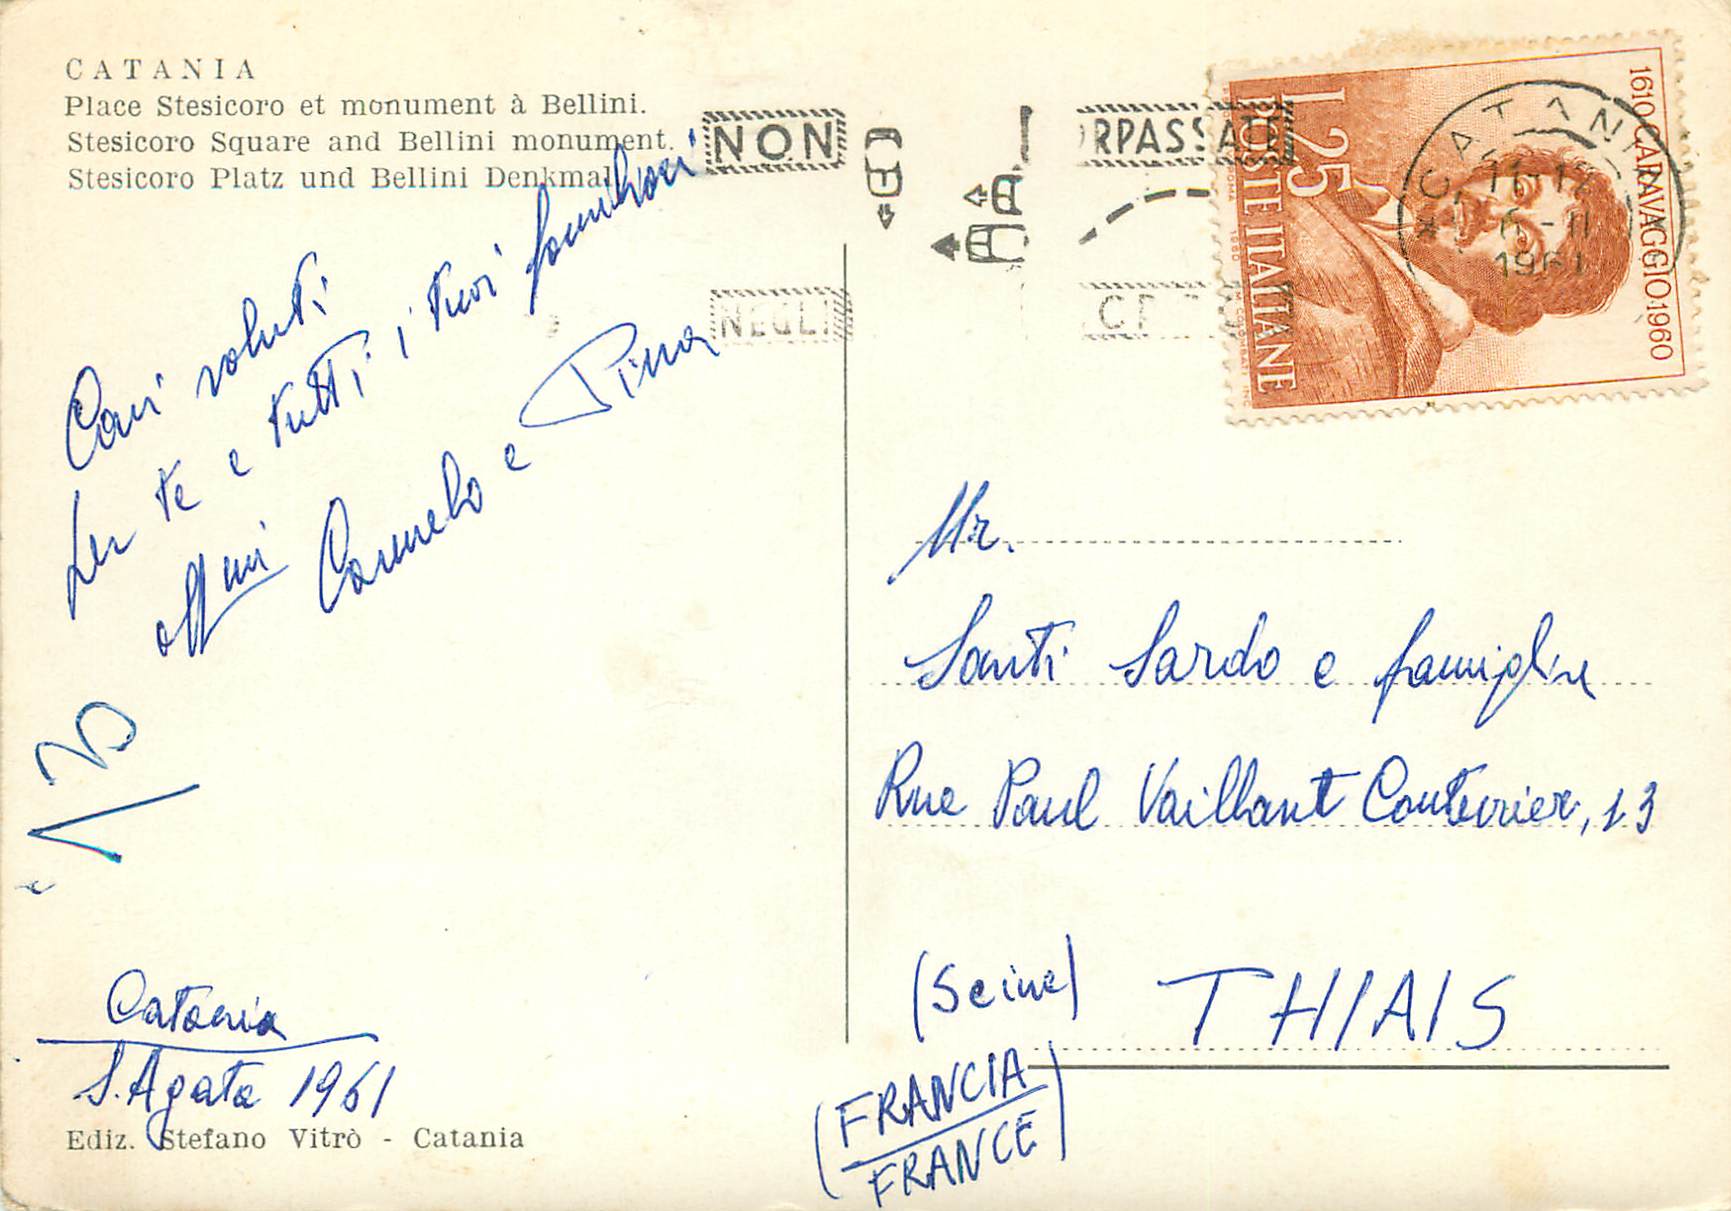 CATANIA
Place Stesicoro et monument à Bellini.
Stesicoro Square and Bellini monument.
Stesicoro Platz und Bellini Denkmal
NON
RPASSA
NEGLI
L. 25
POSTE ITALIANE
1610 CARAVAGGIO 1960
CATANIA
11-12
6-II
1961
Cari saluti
per te e tutti i tuoi familiari
aff.mi Carmelo e Pina
Mr.
Santi Sardo e famiglia
Rue Paul Vaillant Couturier, 13
(Seine) THIAIS
(FRANCIA
FRANCE)
Catania
S. Agata 1961
Ediz. Stefano Vitrò - Catania